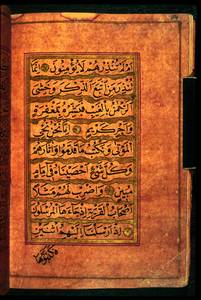 أَمْ لَمْ تُنْذِرْهُمْ لَا يُؤْمِنُونَ إِنَّمَا
تُنْذِرُ مَنِ اتَّبَعَ الذِّكْرَ وَخَشِيَ
الرَّحْمٰنَ بِالْغَيْبِ فَبَشِّرْهُ بِمَغْفِرَةٍ
وَأَجْرٍ كَرِيمٍ إِنَّا نَحْنُ نُحْيِ
الْمَوْتَى وَنَكْتُبُ مَا قَدَّمُوا وَآثَارَهُمْ
وَكُلَّ شَيْءٍ أَحْصَيْنَاهُ فِي إِمَامٍ
مُبِينٍ وَاضْرِبْ لَهُمْ مَثَلًا
أَصْحَابَ الْقَرْيَةِ إِذْ جَاءَهَا الْمُرْسَلُونَ
إِذْ أَرْسَلْنَا إِلَيْهِمُ اثْنَيْنِ
فكذبوهما